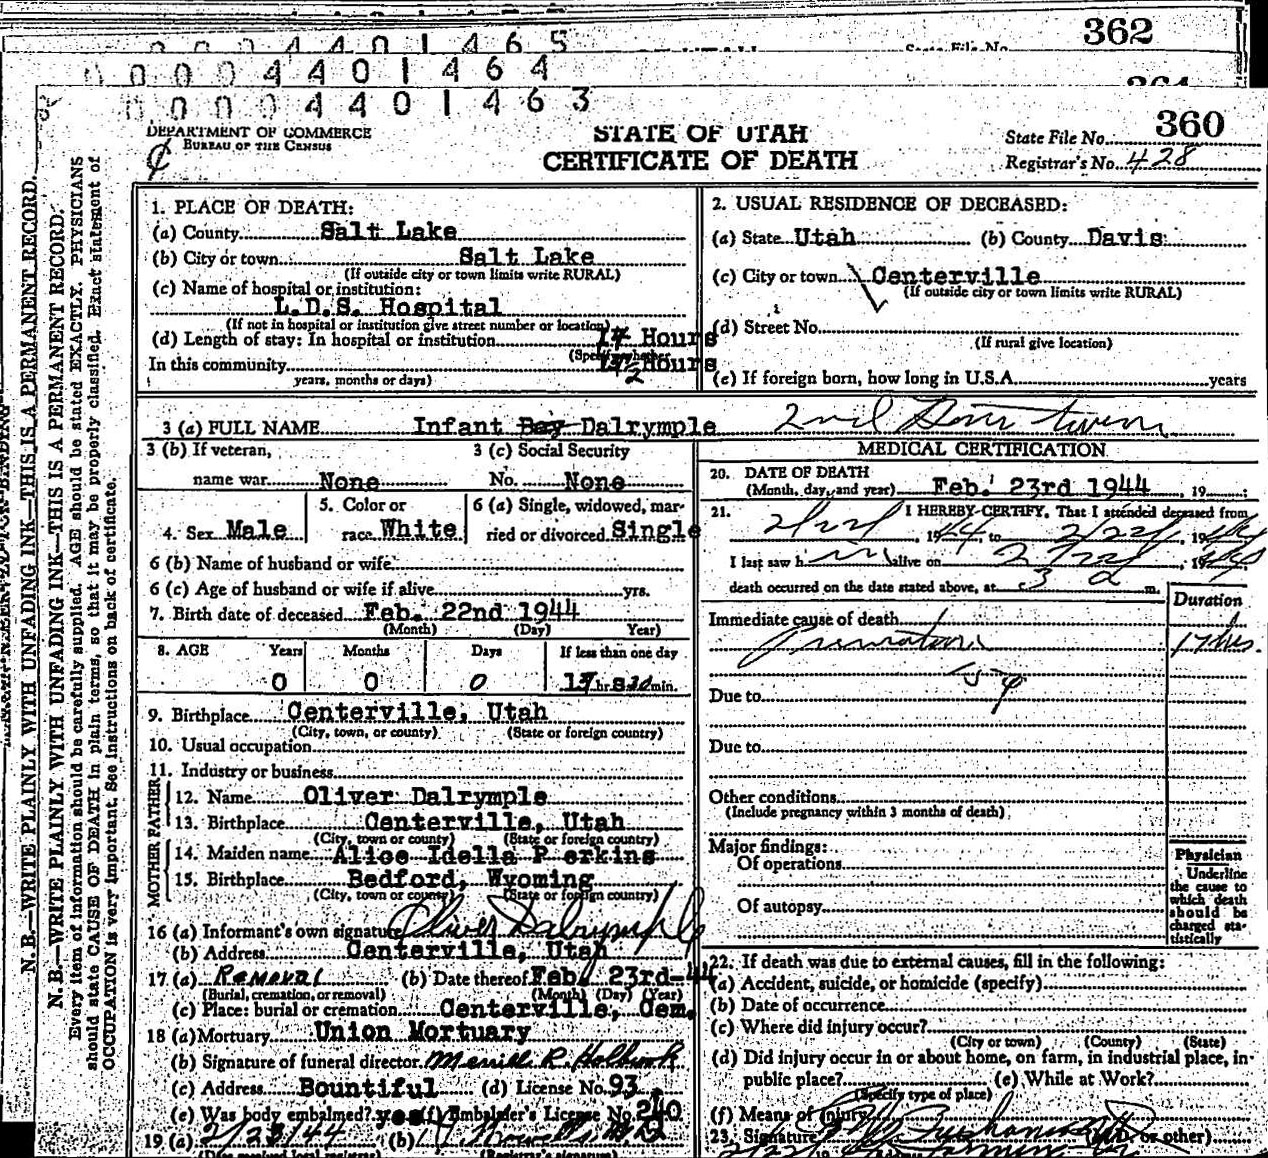 362
0 0 0 4 4 0 1 4 6 5
State File No.
0 0 0 4 4 0 1 4 6 4
0 0 0 4 4 0 1 4 6 3
DEPARTMENT OF COMMERCE
BUREAU OF THE CENSUS
STATE OF UTAH
CERTIFICATE OF DEATH
State File No. 360
Registrar's No. 428
N. B.—WRITE PLAINLY WITH UNFADING INK—THIS IS A PERMANENT RECORD.
N. B.—WRITE PLAINLY WITH UNFADING INK—THIS IS A PERMANENT RECORD.
Every item of information should be carefully supplied. AGE should be stated EXACTLY. PHYSICIANS
should state CAUSE OF DEATH in plain terms, so that it may be properly classified. Exact statement of
OCCUPATION is very important. See instructions on back of certificate.
1. PLACE OF DEATH:
(a) County Salt Lake
(b) City or town Salt Lake
(If outside city or town limits write RURAL)
(c) Name of hospital or institution:
L.D.S. Hospital
(If not in hospital or institution give street number or location)
(d) Length of stay: In hospital or institution Hours
In this community Hours
years, months or days)
2. USUAL RESIDENCE OF DECEASED:
(a) State Utah (b) County Davis
(c) City or town Centerville
(If outside city or town limits write RURAL)
(d) Street No.
(If rural give location)
(e) If foreign born, how long in U.S.A. years
3 (a) FULL NAME Infant Boy Dalrymple 2nd Born twin
3 (b) If veteran, 3 (c) Social Security
name war None No. None
4. Sex Male 5. Color or race White 6 (a) Single, widowed, married or divorced Single
6 (b) Name of husband or wife
6 (c) Age of husband or wife if alive yrs.
7. Birth date of deceased Feb. 22nd 1944
(Month) (Day) Year)
8. AGE Years Months Days If less than one day
0 0 0 17 hrs 30 min.
9. Birthplace Centerville, Utah
(City, town, or county) (State or foreign country)
10. Usual occupation
11. Industry or business
FATHER
12. Name Oliver Dalrymple
13. Birthplace Centerville, Utah
(City, town or county) (State or foreign country)
MOTHER
14. Maiden name Alice Idella P erkins
15. Birthplace Bedford, Wyoming
(City, town or county) (State or foreign country)
16 (a) Informant's own signature Oliver Dalrymple
(b) Address Centerville, Utah
17 (a) Removal (b) Date thereof Feb. 23rd-44
(Burial, cremation, or removal) (Month) (Day) (Year)
(c) Place: burial or cremation Centerville, Cem.
18 (a) Mortuary Union Mortuary
(b) Signature of funeral director Merrill R. Holbrook
(c) Address Bountiful (d) License No. 93
(e) Was body embalmed? yes (f) Embalmer's License No. 240
19 (a) 2/23/44 (b)
(Date received local registrar) (Registrar's signature)
MEDICAL CERTIFICATION
20. DATE OF DEATH
(Month, day, and year) Feb. 23rd 1944, 19
21. I HEREBY CERTIFY, That I attended deceased from
2/22, 1944, to 2/22, 1944
I last saw h im alive on 2/22, 1944
death occurred on the date stated above, at 3 a m.
Duration
Immediate cause of death
Premature 17 hrs.
159
Due to
Due to
Other conditions
(Include pregnancy within 3 months of death)
Major findings:
Of operations
Of autopsy
Physician
Underline
the cause to
which death
should be
charged sta-
tistically
22. If death was due to external causes, fill in the following:
(a) Accident, suicide, or homicide (specify)
(b) Date of occurrence
(c) Where did injury occur?
(City or town) (County) (State)
(d) Did injury occur in or about home, on farm, in industrial place, in
public place? (e) While at Work?
(Specify type of place)
(f) Means of Injury
23. Signature (M.D. or other)